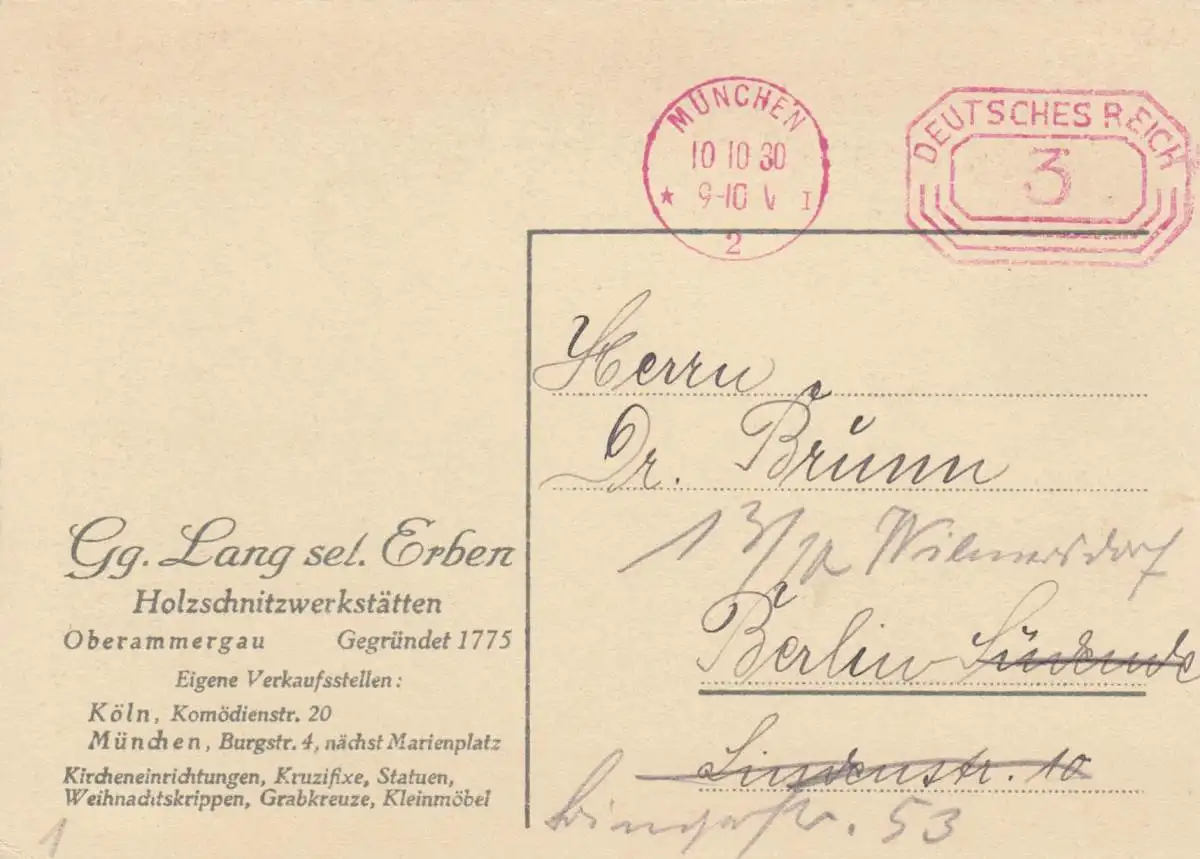 MÜNCHEN
10 10 30
9-10 V I
2
DEUTSCHES REICH
3
Herrn
Dr. Brunn
13/10 Wilmersdorf
Berlin Südende
Lindenstr. 10
Bingerstr. 53
Gg. Lang sel. Erben
Holzschnitzwerkstätten
Oberammergau Gegründet 1775
Eigene Verkaufsstellen:
Köln, Komödienstr. 20
München, Burgstr. 4, nächst Marienplatz
Kircheneinrichtungen, Kruzifixe, Statuen,
Weihnachtskrippen, Grabkreuze, Kleinmöbel
1